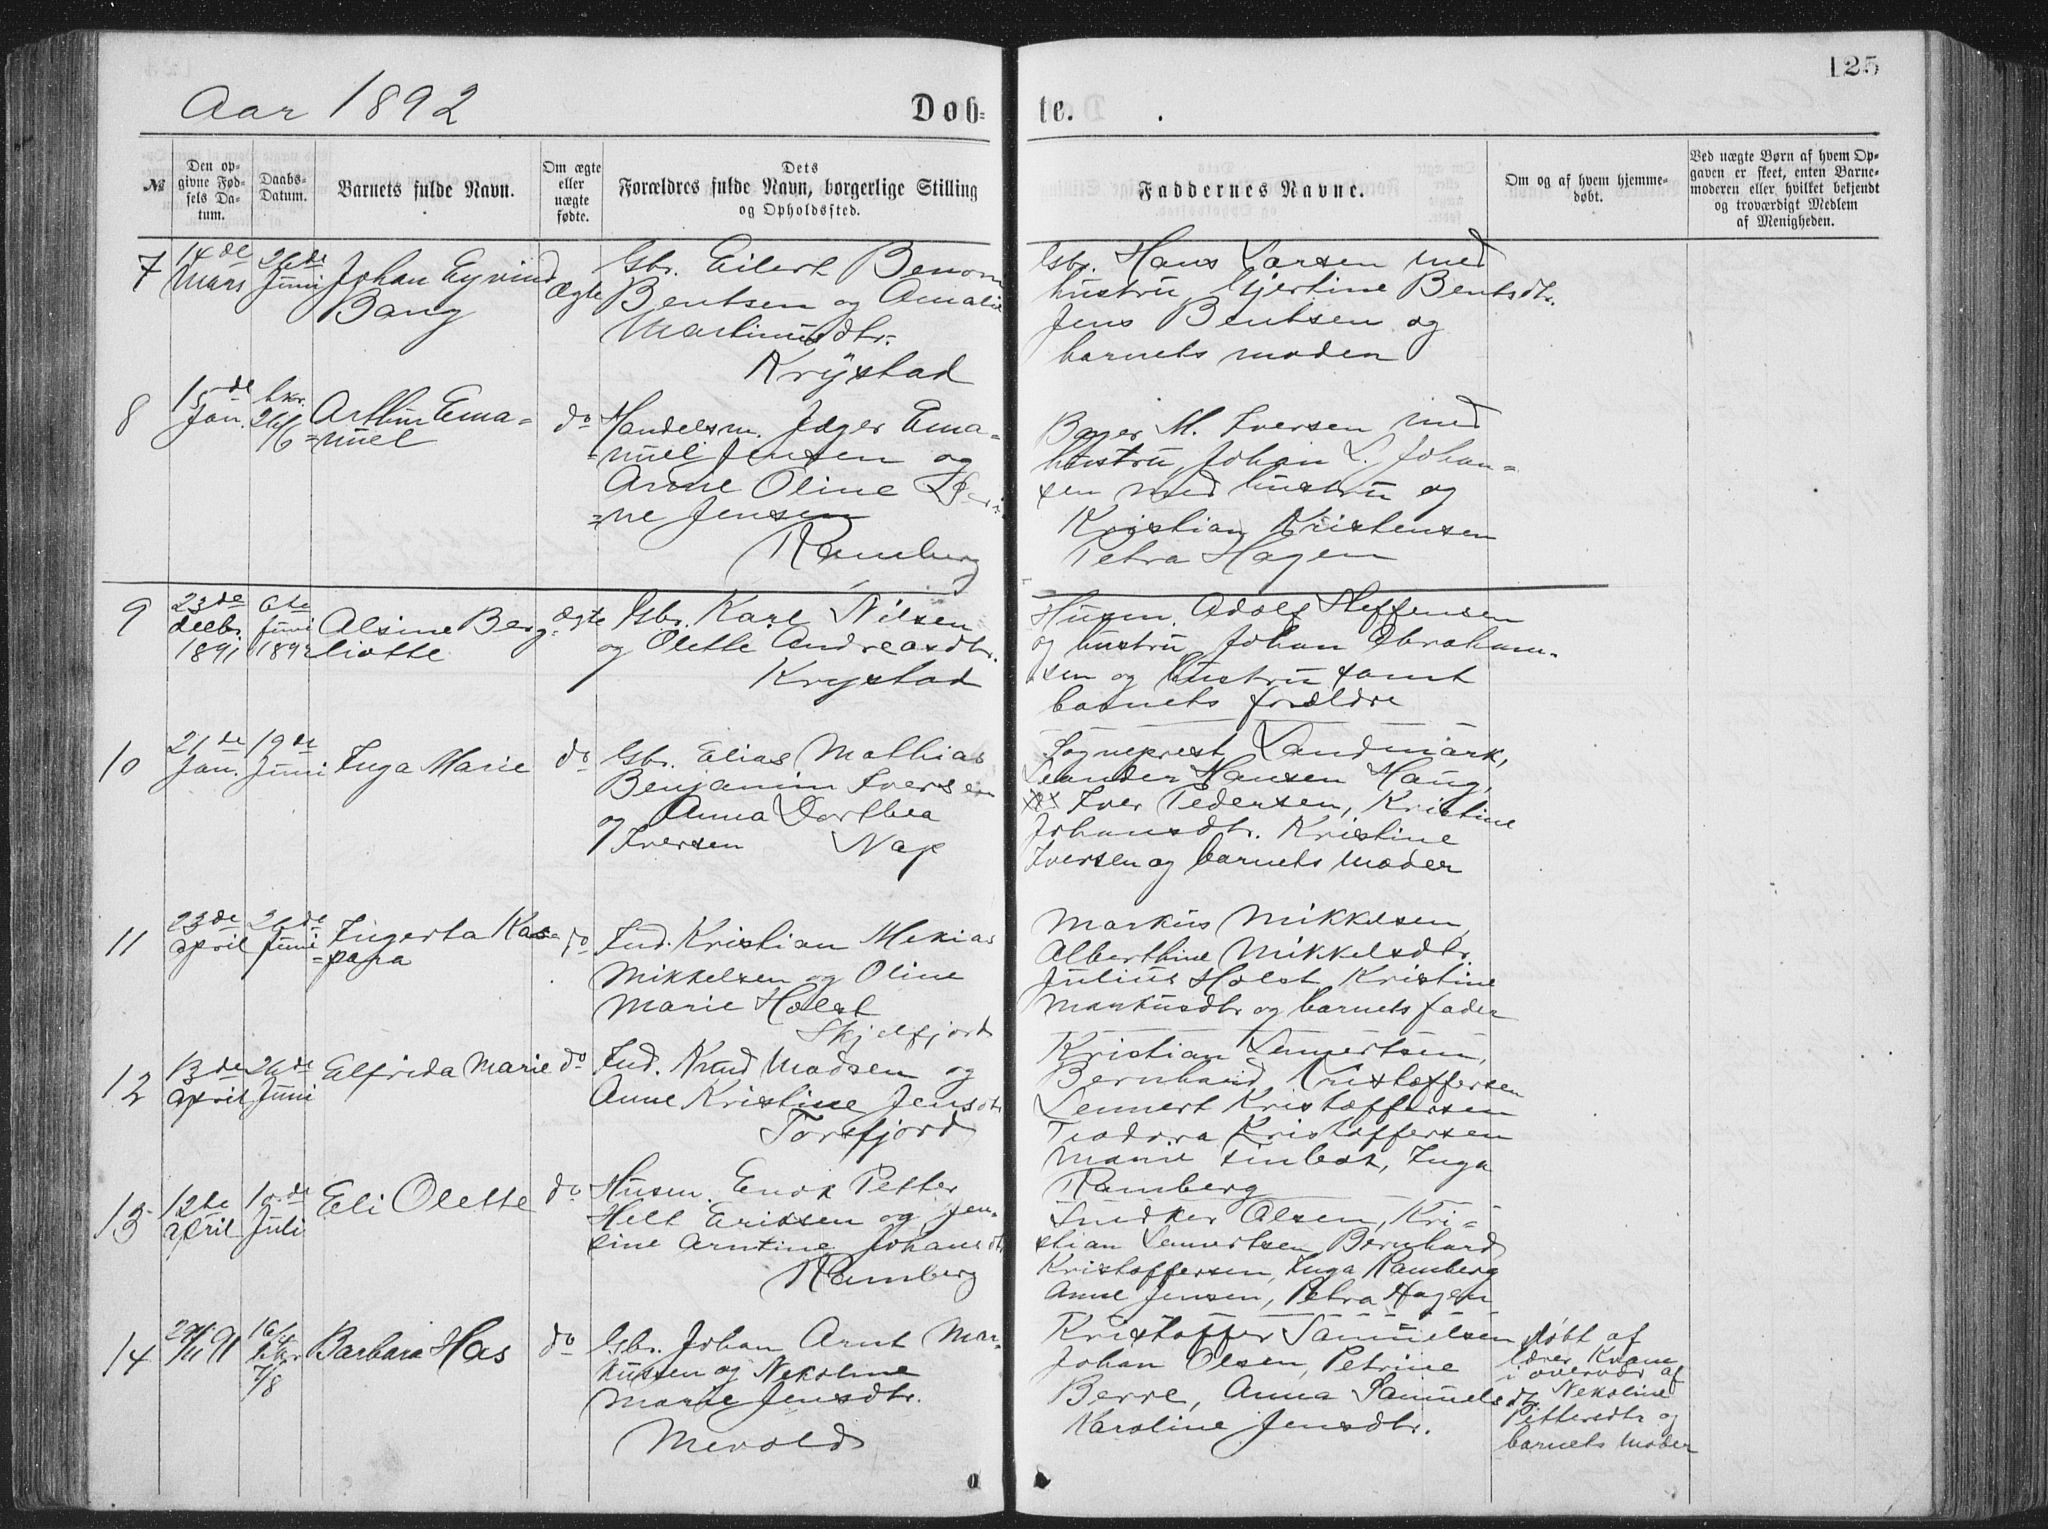 125
Aar 1892
Døb-
te.
№
Den op-
givne Fød-
sels Da-
tum.
Daabs-
Datum.
Barnets fulde Navn.
Om ægte
eller
uægte
fødte.
Dets
Forældres fulde Navn, borgerlige Stilling
og Opholdssted.
Faddernes Navne.
Om og af hvem hjemme-
døbt.
Ved uægte Børn af hvem Op-
gaven er skeet, enten Barne-
moderen eller hvilket bekjendt
og troværdigt Medlem
af Menigheden.
7
14de
Mars
26de
Juni
Johan Eyvind
Bang
Ægte
Gbr. Eilert Benoni
Bentsen og Amalie
Martinusdtr.
Krystad
Gbr. Hans Larsen med
hustru, Hjertine Bentsdtr.
Jens Bentsen og
barnets moder
8
15de
Jan.
bkr.
26/6
Arthur Ema-
=nuel
do
Handelsm. Jæger Ema-
=nuel Jensen og
Anne Oline
=ne Jensen
Ramberg
M. Iversen med
hustru, Johan L. Johan-
sen med hustru og
Kristian Kristensen
Petra Hagen
9
23de
decbr.
1891
6te
juni
1892
Alsine Berg
liotte
ægte
Gbr. Karl Nilsen
og Olette Andreasdtr.
Krystad
Husm. Adolf Steffensen
og hustru, Johan Abraham-
sen og hustru samt
barnets forældre
10
21de
Jan.
19de
Juni
Inga Marie
do
Gbr. Elias Mathias
Benjamin Iversen
og Anna Dorthea
Iversen Nap
Sogneprest Landmark,
Leander Hansen Haug,
Iver Pedersen, Kristine
Johansdtr. Kristine
Iversen og barnets moder
11
23de
april
26de
Juni
Ingerta Kas-
=para
do
Ind. Kristian Mekias
Mikkelsen og Oline
Marie Holst
Skjelfjord
Markus Mikkelsen,
Alberthine Mikkelsdtr.
Julius Holst, Kristine
Markusdtr og barnets fader
12
13de
april
26de
Juni
Elfrida Marie
do
Ind. Knud Madsen og
Anne Kristine Jensdtr
Torsfjord
Kristian Lennertsen,
Bernhard Kristoffersen
Lennert Kristoffersen
Teodora Kristoffersen
Marie, Inga
Ramberg
13
12te
april
10de
Juli
Eli Olette
do
Husm. Enok Petter
Helt Erissen og Jen-
sine Arntine Johansdtr
Ramberg
Snedker Olsen, Kri-
stian Lennertsen Bernhard
Kristoffersen, Inga Ramberg
Anne Jensen, Petra Hagen
14
29/11 91
16/1
bkr
7/8
Barbara Has
do
Gbr. Johan Arnt Mar-
kussen og Nekoline
Marie Jensdtr.
Mevold
Kristoffer Samuelsen
Johan Olsen, Petrine
Berre, Anna Samuelsdtr
Karoline Jensdtr.
døbt af
lærer Kvam
i overvær af
Nekoline
Pettersdtr og
barnets moder